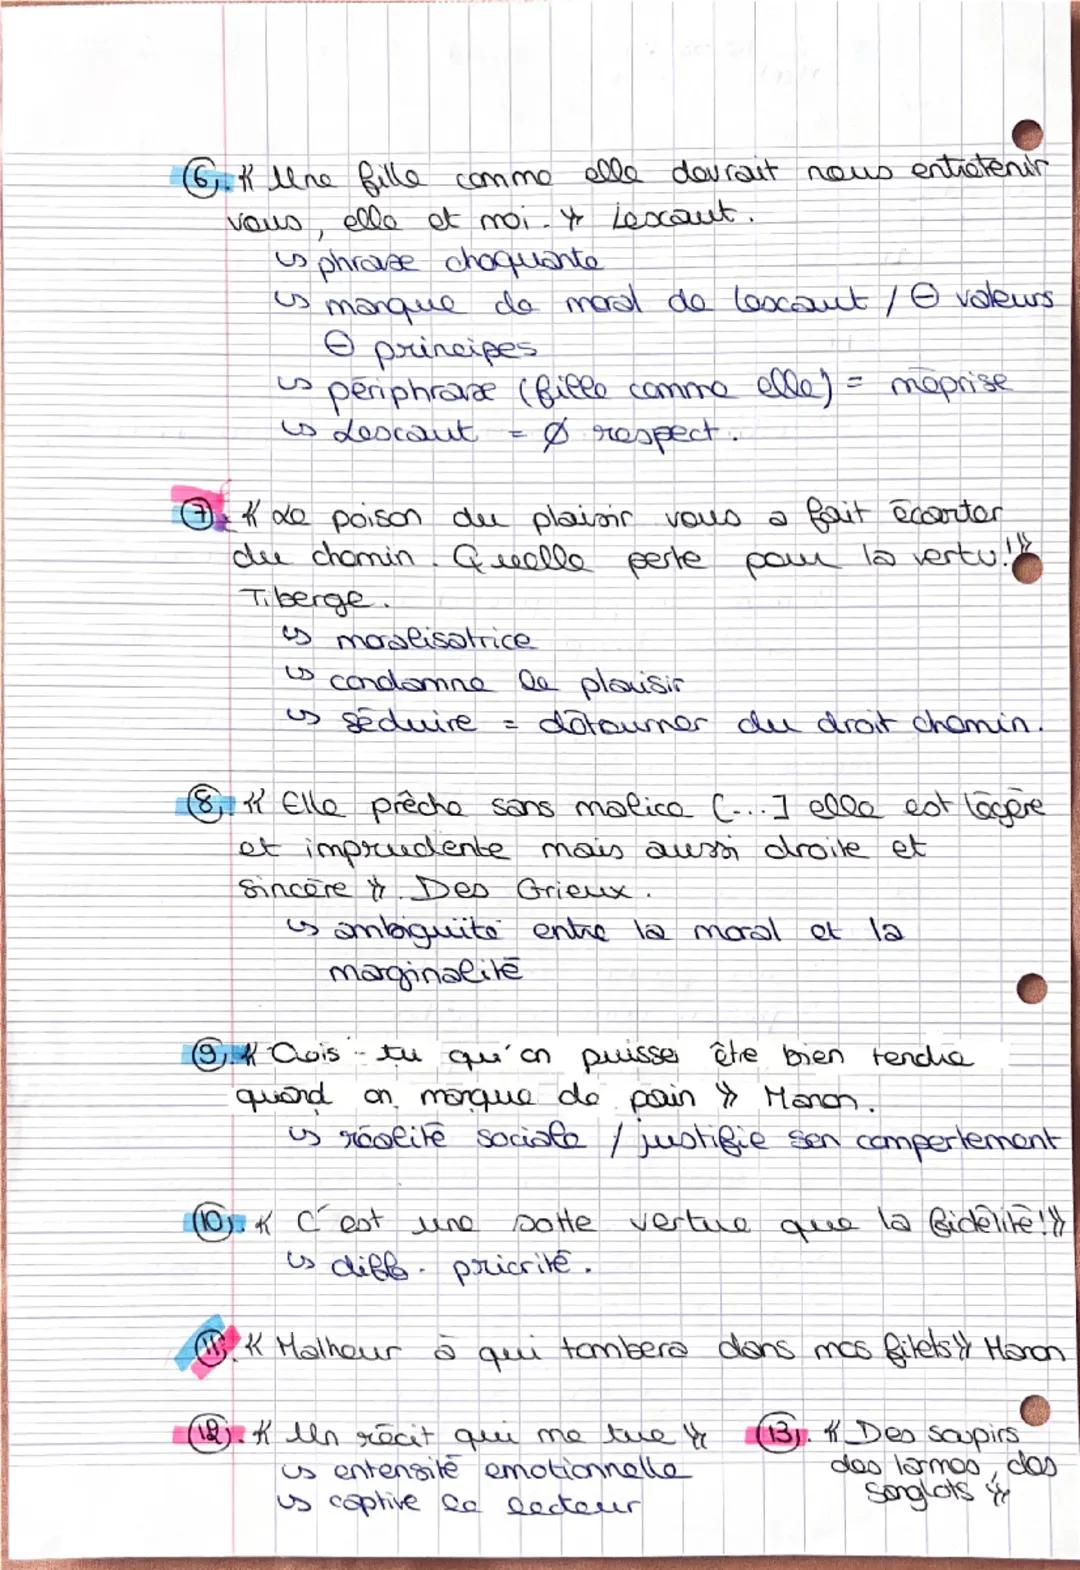 6). « Une fille comme elle devrait nous entretenir
vous, elle et moi. » Lescaut.
↳ phrase choquante
↳ manque de moral de Lescaut / ⊖ valeurs
⊖ principes
↳ périphrase (fille comme elle) = méprise
↳ Lescaut = Ø respect.
7). « Le poison du plaisir vous a fait écarter
du chemin. Quelle perte pour la vertu! »
Tiberge.
↳ moralisatrice
↳ condamne le plaisir
↳ séduire = détourner du droit chemin.
8). « Elle pêche sans malice [...] elle est légère
et imprudente mais aussi droite et
sincère ». Des Grieux.
↳ ambiguïté entre la moral et la
marginalité
9). « Crois-tu qu'on puisse être bien tendre
quand on manque de pain » Manon.
↳ réalité sociale / justifie son comportement
10). « C'est une sotte vertue que la fidélité! »
↳ diff. priorité.
11). « Malheur à qui tombera dans mes filets » Manon
12). « Un récit qui me tue »
↳ entensité emotionnelle
↳ captive le lecteur
13). « Des soupirs
des larmes, des
sanglots »